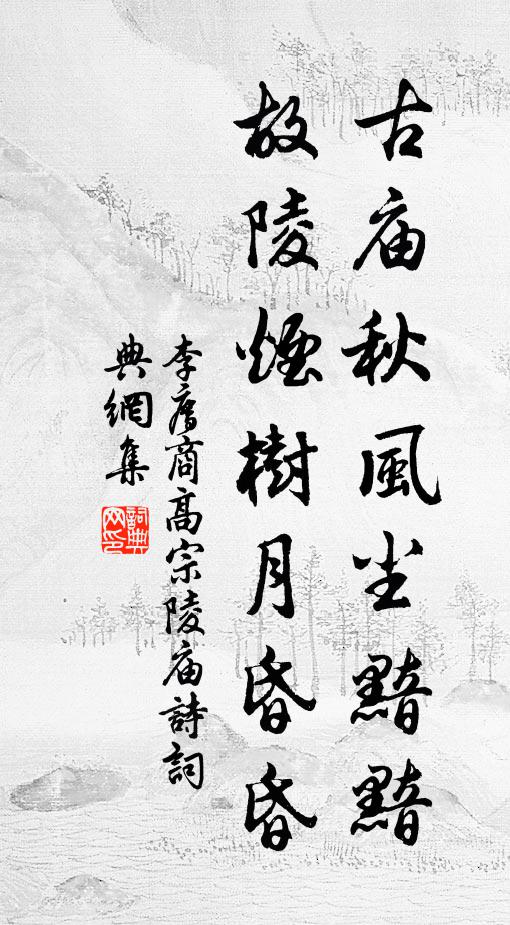 古庙秋風尘黯黯
故陵煙樹月昏昏
李膺商高宗陵庙詩詞
典網集
詞典網印